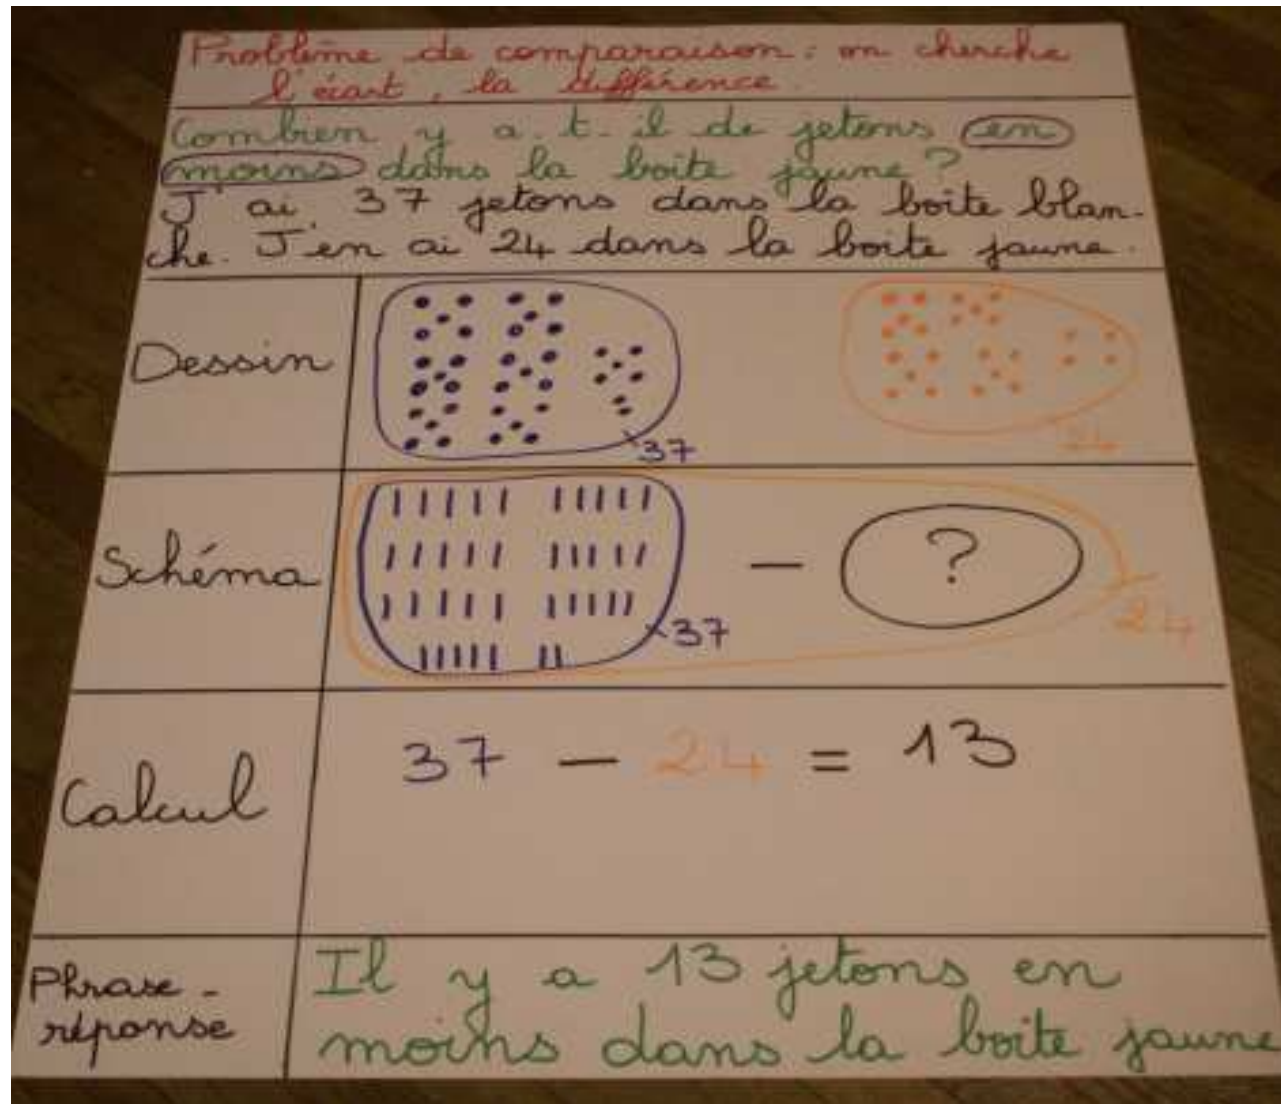 Problème de comparaison : on cherche
l'écart, la différence.
Combien y a-t-il de jetons en
moins dans la boîte jaune ?
J'ai 37 jetons dans la boîte blan-
che. J'en ai 24 dans la boîte jaune.
Dessin
37
24
Schéma
− ?
37
24
Calcul
37 − 24 = 13
Phrase-
réponse
Il y a 13 jetons en
moins dans la boîte jaune